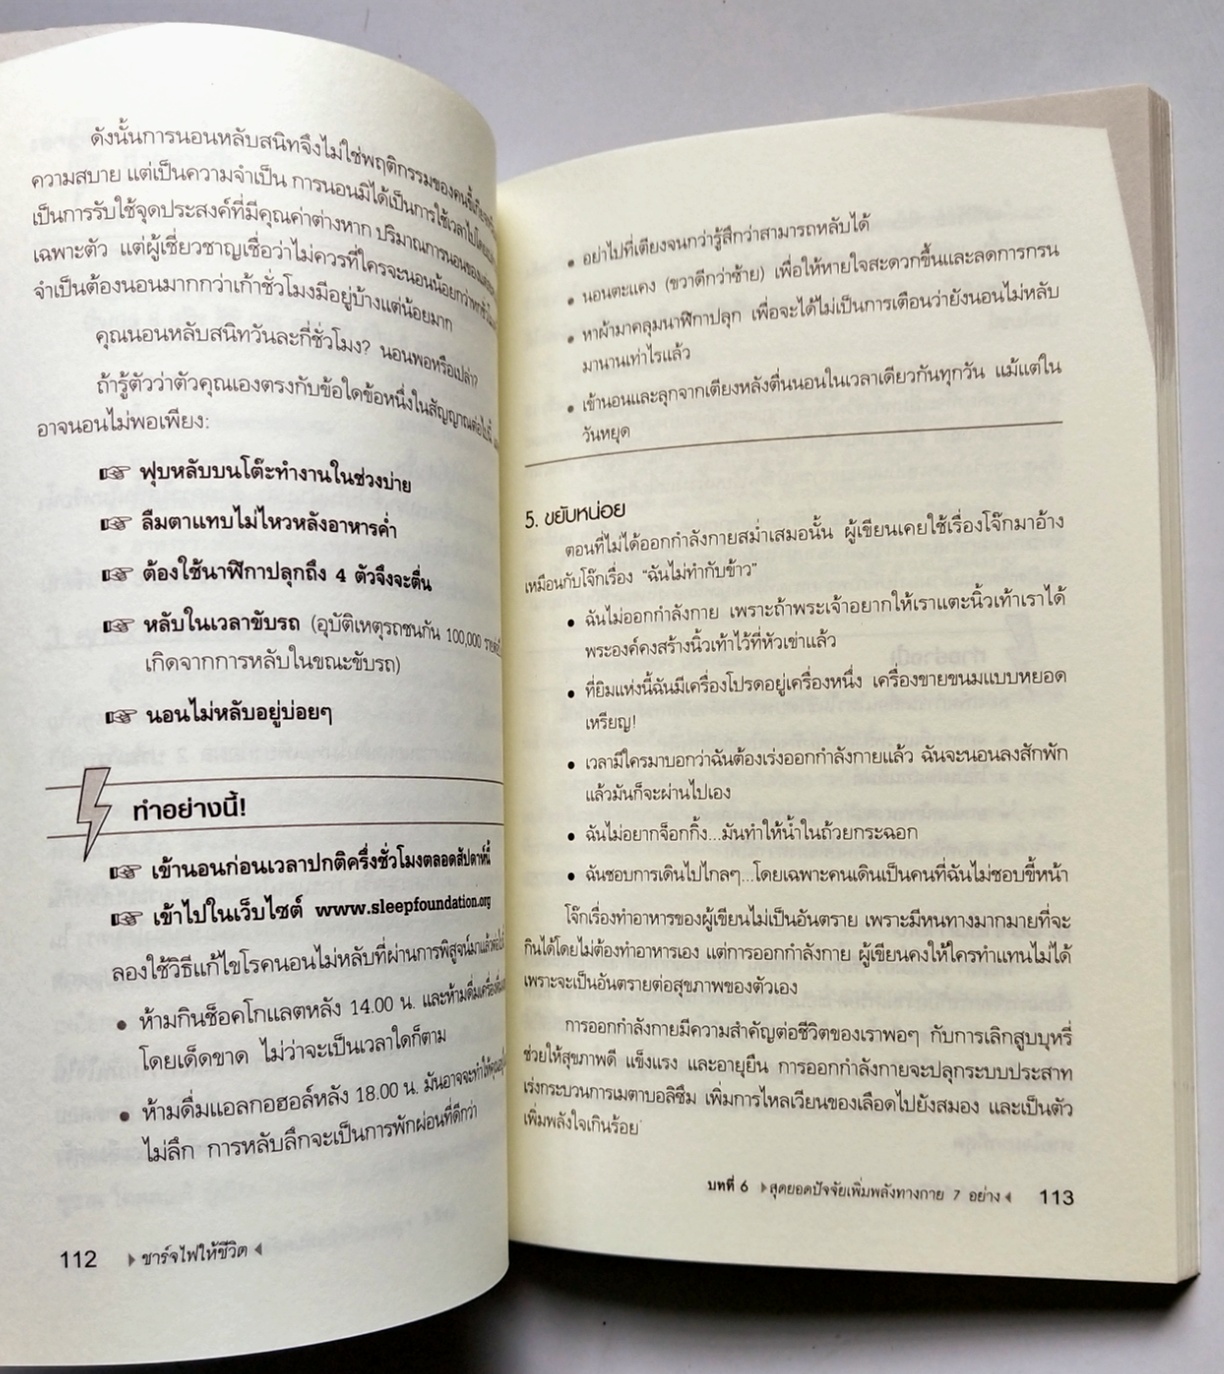 ดังนั้นการนอนหลับสนิทจึงไม่ใช่พฤติกรรมของคนขี้เกียจหรือ
ความสบาย แต่เป็นความจำเป็น การนอนมิได้เป็นการใช้เวลาไปโดย
เป็นการรับใช้จุดประสงค์ที่มีคุณค่าต่างหาก ปริมาณการนอนของแต่ละ
เฉพาะตัว แต่ผู้เชี่ยวชาญเชื่อว่าไม่ควรที่ใครจะนอนน้อยกว่าหกชั่วโมง
จำเป็นต้องนอนมากกว่าเก้าชั่วโมงมีอยู่บ้างแต่น้อยมาก
คุณนอนหลับสนิทวันละกี่ชั่วโมง? นอนพอหรือเปล่า?
ถ้ารู้ตัวว่าตัวคุณเองตรงกับข้อใดข้อหนึ่งในสัญญาณต่อไปนี้
อาจนอนไม่พอเพียง:
☞ ฟุบหลับบนโต๊ะทำงานในช่วงบ่าย
☞ ลืมตาแทบไม่ไหวหลังอาหารค่ำ
☞ ต้องใช้นาฬิกาปลุกถึง 4 ตัวจึงจะตื่น
☞ หลับในเวลาขับรถ (อุบัติเหตุรถชนกัน 100,000
เกิดจากการหลับในขณะขับรถ)
☞ นอนไม่หลับอยู่บ่อยๆ
ทำอย่างนี้!
☞ เข้านอนก่อนเวลาปกติครึ่งชั่วโมงตลอดสัปดาห์นี้
☞ เข้าไปในเว็บไซต์ www.sleepfoundation.org
ลองใช้วิธีแก้ไขโรคนอนไม่หลับที่ผ่านการพิสูจน์มาแล้ว
• ห้ามกินช็อคโกแลตหลัง 14.00 น. และห้ามดื่มเครื่องดื่ม
โดยเด็ดขาด ไม่ว่าจะเป็นเวลาใดก็ตาม
• ห้ามดื่มแอลกอฮอล์หลัง 18.00 น. มันอาจจะทำให้คุณ
ไม่ลึก การหลับลึกจะเป็นการพักผ่อนที่ดีกว่า
112 ชาร์จไฟให้ชีวิต
• อย่าไปที่เตียงจนกว่ารู้สึกว่าสามารถหลับได้
• นอนตะแคง (ขวาดีกว่าซ้าย) เพื่อให้หายใจสะดวกขึ้นและลดการกรน
• หาผ้ามาคลุมนาฬิกาปลุก เพื่อจะได้ไม่เป็นการเตือนว่ายังนอนไม่หลับ
มานานเท่าไรแล้ว
• เข้านอนและลุกจากเตียงหลังตื่นนอนในเวลาเดียวกันทุกวัน แม้แต่ใน
วันหยุด
5. ขยับหน่อย
ตอนที่ไม่ได้ออกกำลังกายสม่ำเสมอนั้น ผู้เขียนเคยใช้เรื่องโจ๊กมาอ้าง
เหมือนกับโจ๊กเรื่อง "ฉันไม่ทำกับข้าว"
• ฉันไม่ออกกำลังกาย เพราะถ้าพระเจ้าอยากให้เราแตะนิ้วเท้าเราได้
พระองค์คงสร้างนิ้วเท้าไว้ที่หัวเข่าแล้ว
• ที่ยิมแห่งนี้ฉันมีเครื่องโปรดอยู่เครื่องหนึ่ง เครื่องขายขนมแบบหยอด
เหรียญ!
• เวลามีใครมาบอกว่าฉันต้องเร่งออกกำลังกายแล้ว ฉันจะนอนลงสักพัก
แล้วมันก็จะผ่านไปเอง
• ฉันไม่อยากจ็อกกิ้ง...มันทำให้น้ำในถ้วยกระฉอก
• ฉันชอบการเดินไปไกลๆ...โดยเฉพาะคนเดินเป็นคนที่ฉันไม่ชอบขี้หน้า
โจ๊กเรื่องทำอาหารของผู้เขียนไม่เป็นอันตราย เพราะมีหนทางมากมายที่จะ
กินได้โดยไม่ต้องทำอาหารเอง แต่การออกกำลังกาย ผู้เขียนคงให้ใครทำแทนไม่ได้
เพราะจะเป็นอันตรายต่อสุขภาพของตัวเอง
การออกกำลังกายมีความสำคัญต่อชีวิตของเราพอๆ กับการเลิกสูบบุหรี่
ช่วยให้สุขภาพดี แข็งแรง และอายุยืน การออกกำลังกายจะปลุกระบบประสาท
เร่งกระบวนการเมตาบอลิซึม เพิ่มการไหลเวียนของเลือดไปยังสมอง และเป็นตัว
เพิ่มพลังใจเกินร้อย
บทที่ 6 สุดยอดปัจจัยเพิ่มพลังทางกาย 7 อย่าง 113